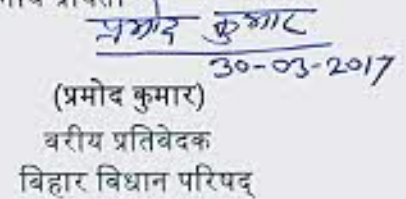 प्रमोद कुमार
30-03-2017
(प्रमोद कुमार)
वरीय प्रतिवेदक
बिहार विधान परिषद्